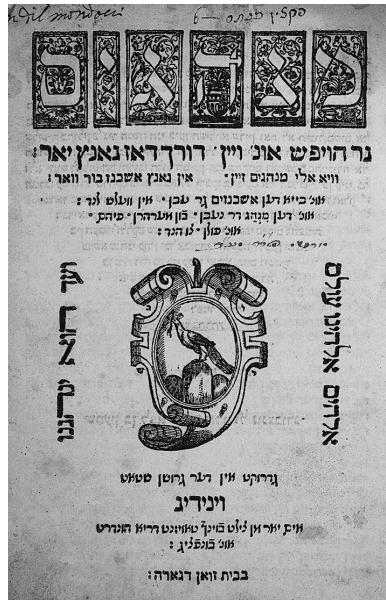 מנהגים
גר הויפש אונ׳ ויין׳ דורך דאז גאנץ יאר :
וויא אלי מנהגים זיין׳ אין גאנץ אשכנז בור וואר :
אונ׳ בייא דען אשכנזים גר עבן׳ אין וועלש לנד :
אונ׳ דען מנהג דר נעבן׳ בון מערהרן׳ פיהם׳
אונ׳ פולן׳ צו הנד :
אלהים אלהינו עולם
ועד הוא ינהגנו
גדרוקט אין דער גרושן שטאט
וינידיג
אים יאר מן צילט בוינף טאוזינט דריא הונדרט
אונ׳ בונפציג :
בבית זואן דגארה :